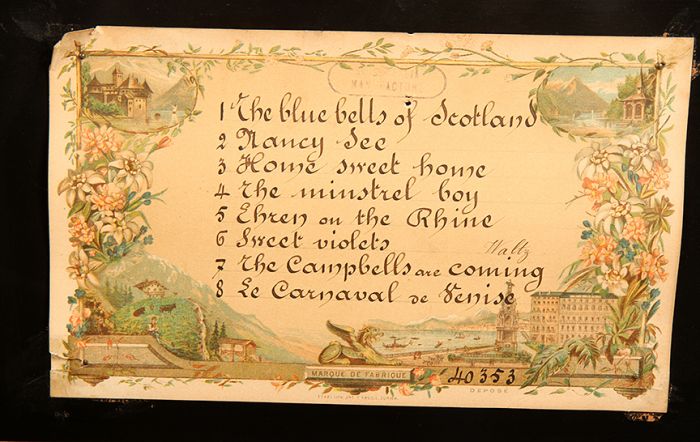 MANUFACTURE
1 The blue bells of Scotland
2 Nancy Lee
3 Home sweet home
4 The minstrel boy
5 Ehren on the Rhine
6 Sweet violets
Waltz
7 The Campbells are coming
8 Le Carnaval de Venise
MARQUE DE FABRIQUE
40353
DEPOSÉ